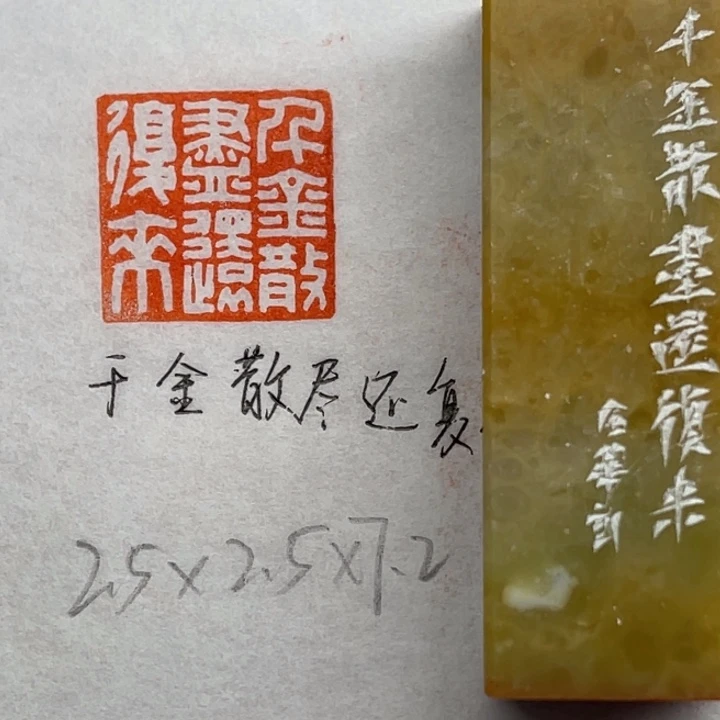 千金散
盡還
復來
千金散尽还复
2.5×2.5×7.2
千金散盡還復来